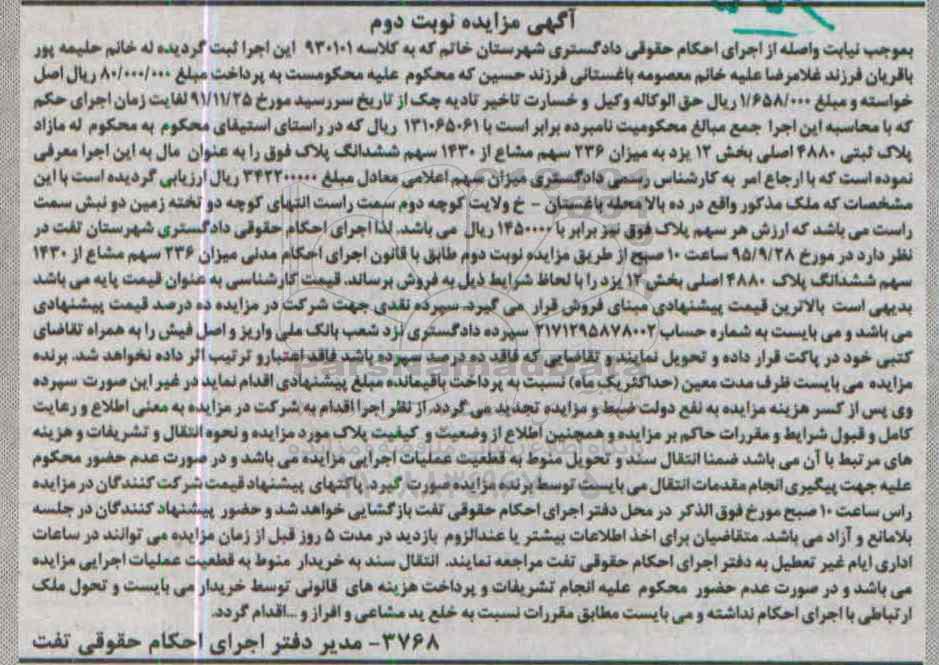 آگهی مزایده نوبت دوم
بموجب نیابت واصله از اجرای احکام حقوقی دادگستری شهرستان خاتم که به کلاسه ۹۳۰۱۰۱ این اجرا ثبت گردیده له خانم حلیمه پور
باقریان فرزند غلامرضا علیه خانم معصومه باغستانی فرزند حسین که محکوم علیه محکومست به پرداخت مبلغ ۸۰/۰۰۰/۰۰۰ ریال اصل
خواسته و مبلغ ۱/۶۵۸/۰۰۰ ریال حق الوکاله وکیل و خسارت تاخیر تادیه چک از تاریخ سررسید مورخ ۹۱/۱۱/۲۵ لغایت زمان اجرای حکم
که با محاسبه این اجرا جمع مبالغ محکومیت نامبرده برابر است با ۱۳۱۰۶۵۰۶۱ ریال که در راستای استیفای محکوم به محکوم له مازاد
پلاک ثبتی ۴۸۸۰ اصلی بخش ۱۲ یزد به میزان ۲۳۶ سهم مشاع از ۱۴۳۰ سهم ششدانگ پلاک فوق را به عنوان مال به این اجرا معرفی
نموده است که با ارجاع امر به کارشناس رسمی دادگستری میزان سهم اعلامی معادل مبلغ ۳۴۲۲۰۰۰۰۰ ریال ارزیابی گردیده است با این
مشخصات که ملک مذکور واقع در ده بالا محله باغستان - خ ولایت کوچه دوم سمت راست انتهای کوچه دو تخته زمین دو نبش سمت
راست می باشد که ارزش هر سهم پلاک فوق نیز برابر با ۱۴۵۰۰۰۰ ریال می باشد. لذا اجرای احکام حقوقی دادگستری شهرستان تفت در
نظر دارد در مورخ ۹۵/۹/۲۸ ساعت ۱۰ صبح از طریق مزایده نوبت دوم طابق با قانون اجرای احکام مدنی میزان ۲۳۶ سهم مشاع از ۱۴۳۰
سهم ششدانگ پلاک ۴۸۸۰ اصلی بخش ۱۲ یزد را با لحاظ شرایط ذیل به فروش برساند. قیمت کارشناسی به عنوان قیمت پایه می باشد
بدیهی است بالاترین قیمت پیشنهادی مبنای فروش قرار می گیرد. سپرده نقدی جهت شرکت در مزایده ده درصد قیمت پیشنهادی
می باشد و می بایست به شماره حساب ۲۱۷۱۲۹۵۸۷۸۰۰۲ سپرده دادگستری نزد شعب بانک ملی واریز و اصل فیش را به همراه تقاضای
کتبی خود در پاکت قرار داده و تحویل نمایند و تقاضایی که فاقد ده درصد سپرده باشد فاقد اعتبارو ترتیب اثر داده نخواهد شد. برنده
مزایده می بایست ظرف مدت معین (حداکثر یک ماه) نسبت به پرداخت باقیمانده مبلغ پیشنهادی اقدام نماید در غیر این صورت سپرده
وی پس از کسر هزینه مزایده به نفع دولت ضبط و مزایده تجدید می گردد. از نظر اجرا اقدام به شرکت در مزایده به معنی اطلاع و رعایت
کامل و قبول شرایط و مقررات حاکم بر مزایده و همچنین اطلاع از وضعیت و کیفیت پلاک مورد مزایده و نحوه انتقال و تشریفات و هزینه
های مرتبط با آن می باشد ضمنا انتقال سند و تحویل منوط به قطعیت عملیات اجرایی مزایده می باشد و در صورت عدم حضور محکوم
علیه جهت پیگیری انجام مقدمات انتقال می بایست توسط برنده مزایده صورت گیرد. پاکتهای پیشنهاد قیمت شرکت کنندگان در مزایده
راس ساعت ۱۰ صبح مورخ فوق الذکر در محل دفتر اجرای احکام حقوقی تفت بازگشایی خواهد شد و حضور پیشنهاد کنندگان در جلسه
بلامانع و آزاد می باشد. متقاضیان برای اخذ اطلاعات بیشتر یا عندالزوم بازدید در مدت ۵ روز قبل از زمان مزایده می توانند در ساعات
اداری ایام غیر تعطیل به دفتر اجرای احکام حقوقی تفت مراجعه نمایند. انتقال سند به خریدار منوط به قطعیت عملیات اجرایی مزایده
می باشد و در صورت عدم حضور محکوم علیه انجام تشریفات و پرداخت هزینه های قانونی توسط خریدار می بایست و تحول ملک
ارتباطی با اجرای احکام نداشته و می بایست مطابق مقررات نسبت به خلع ید مشاعی و افراز و ...اقدام گردد.
۳۷۶۸- مدیر دفتر اجرای احکام حقوقی تفت